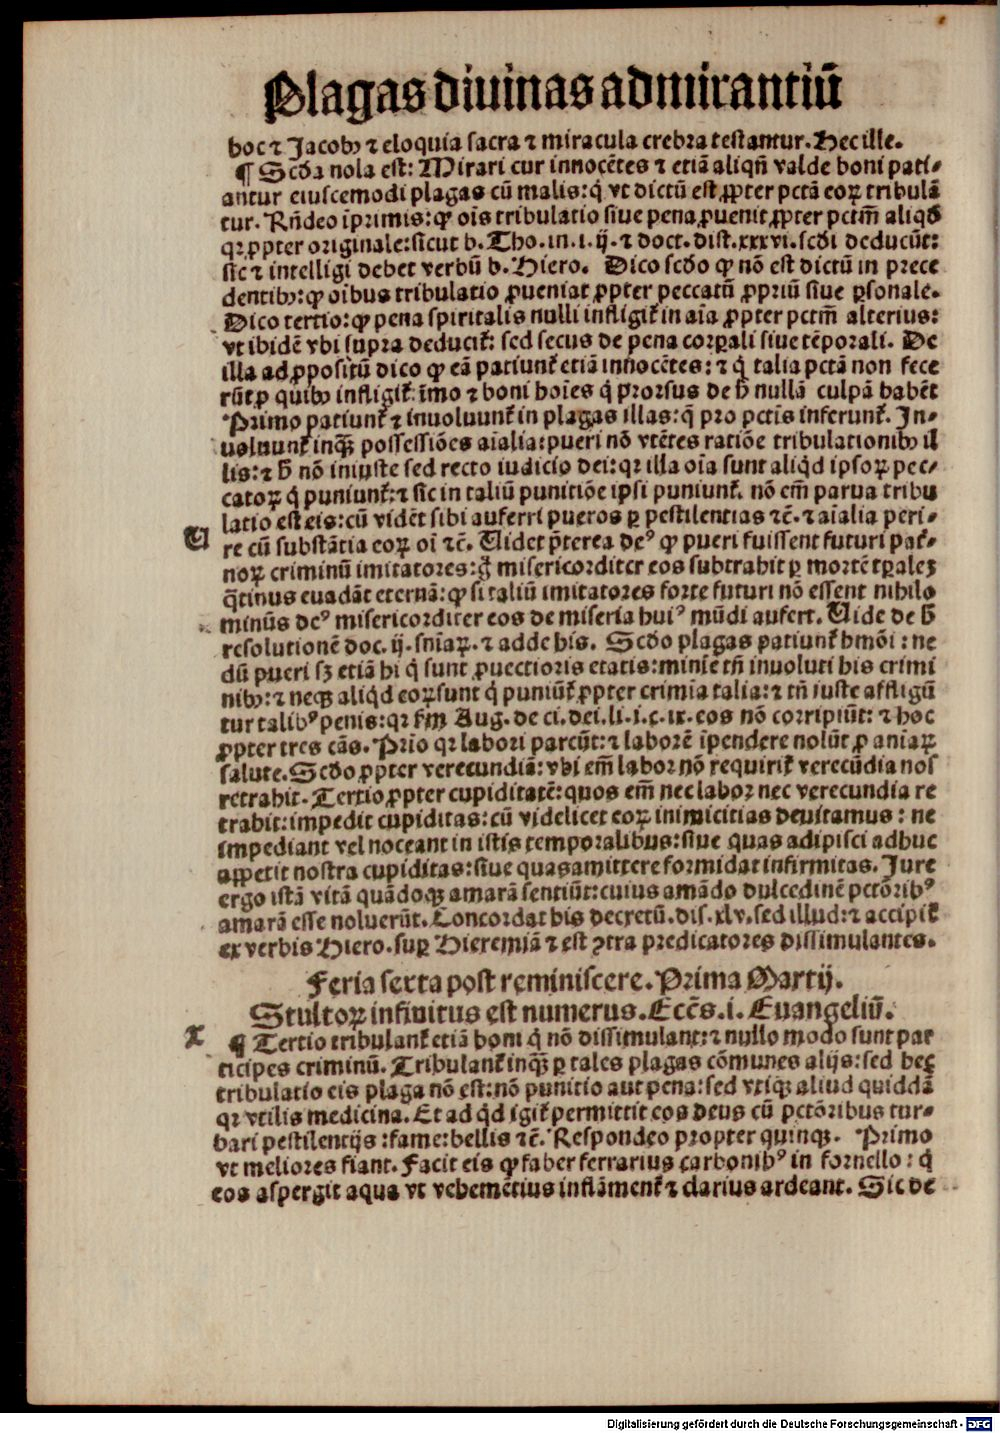 Plagas diuinas admirantiū
hoc ⁊ Jacobꝰ ⁊ eloquia sacra ⁊ miracula crebra testantur. Hec ille.
¶ Scd̄a nola est: Mirari cur innocētes ⁊ etiā aliqn̄ valde boni pati⸗
antur eiuscemodi plagas cū malis: q̇ vt dictū est ꝓpter pctā eoꝝ tribulā
tur. Rn̄deo īprimis: ꝙ oīs tribulatio siue pena ꝓuenit ꝓpter pctm̄ aliqd̓
qꝛ ꝓpter originale: sicut b. Tho. in. i. ij. ⁊ doct. dist. xxxvi. scd̓i deducūt:
sic ⁊ intelligi debet verbū b. Hiero. Dico scd̓o ꝙ nō est dictū in prece
dentibꝰ: ꝙ oībus tribulatio ꝓueniat ꝓpter peccatū ꝓpriū siue ꝑsonale.
Dico tertio: ꝙ pena spiritalis nulli infligit᷑ in aīa ꝓpter pctm̄ alterius:
vt ibidē vbi supra deducit᷑: sed secus de pena corꝑali siue tēporali. De
illa ad ꝓpositū dico ꝙ eā patiunt᷑ etiā innocētes: ⁊ q̇ talia pctā non fece
rūt ꝓ quibꝰ infligit᷑. īmo ⁊ boni hoīes q̇ prorsus de h̓ nullā culpā habēt
Primo patiunt᷑ ⁊ inuoluunt᷑ in plagas illas: q̄ pro pctīs inferunt᷑. In⸗
uoluunt᷑ inqͣꝫ possessiōes aīalia: pueri nō vtētes ratiōe tribulationibꝰ il
lis: ⁊ h̓ nō iniuste sed recto iudicio dei: qꝛ illa oīa sunt aliqd̓ ipsoꝝ pec⸗
catoꝝ q̇ puniunt᷑: ⁊ sic in taliū punitiōe ipsi puniunt᷑. nō em̄ parua tribu
latio est eis: cū vidēt sibi auferri pueros ꝑ pestilentias ⁊c̄. ⁊ aīalia peri⸗
U re cū substātia eoꝝ oī ⁊c̄. Uidet p̄terea deꝰ ꝙ pueri fuissent futuri pat᷑⸗
noꝝ criminū imitatores: g̊ misericorditer eos subtrahit ꝑ mortē tꝑalez
q̄tinus euadāt eternā: ꝙ si taliū imitatores forte futuri nō essent nihilo
minūs deꝰ misericorditer eos de miseria huiꝰ mūdi aufert. Uide de h̓
resolutionē doc. ij. sn̄iaꝝ. ⁊ adde his. Scd̓o plagas patiunt᷑ hmōi: ne
dū pueri sꝫ etiā hi q̇ sunt ꝓuectioris etatis: minīe tn̄ inuoluti his crimi
nibꝰ: ⁊ neqꝫ aliqd̓ eoꝝ sunt q̇ puniūt᷑ ꝓpter crimīa talia: ⁊ tn̄ iuste affligū
tur talibꝰ penis: qꝛ fm̄ Aug. de ci. dei. li. i. ç. ix. eos nō corripiūt: ⁊ hoc
ꝓpter tres cās. Prīo qꝛ labori parcūt: ⁊ laborē īpendere nolūt ꝓ aniaꝝ
salute. Scd̓o ꝓpter verecundiā: vbi em̄ labor nō requirit᷑ verecūdia nos
retrahit. Tertio ꝓpter cupiditatē: quos em̄ nec labor nec verecundia re
trahit: impedit cupiditas: cū videlicet eoꝝ inimicitias deuitamus: ne
impediant vel noceant in istis temporalibus: siue quas adipisci adhuc
aꝑpetit nostra cupiditas: siue quas amittere formidat infirmitas. Jure
ergo istā vitā quādoqꝫ amarā sentiūt: cuius amādo dulcedinē pctōribꝰ
amarā esse noluerūt. Concordat his decretū. dis. xlv. sed illud: ⁊ accipit᷑
ex verbis Hiero. suꝑ Hieremiā ⁊ est ꝯtra predicatores dissimulantes.
Feria sexta post reminiscere. Prima Martij.
Stultoꝝ infinitus est numerus. Eccēs. i. Euangeliū.
X ¶ Tertio tribulant᷑ etiā boni q̇ nō dissimulant: ⁊ nullo modo sunt par
ticipes criminū. Tribulant᷑ inqͣꝫ ꝑ tales plagas cōmunes alijs: sed hec
tribulatio eis plaga nō est: nō punitio aut pena: sed vtiqꝫ aliud quiddā
qꝛ vtilis medicina. Et ad qd̓ igit᷑ permittit eos deus cū pctōribus tur⸗
bari pestilentijs: fame: bellis ⁊c̄. Respondeo propter quinqꝫ. Primo
vt meliores fiant. Facit eis ꝙ faber ferrarius carbonibꝰ in fornello: q̇
eos aspergit aqua vt vehemētius inflāment᷑ ⁊ clarius ardeant. Sic de
Digitalisierung gefördert durch die Deutsche Forschungsgemeinschaft - DFG